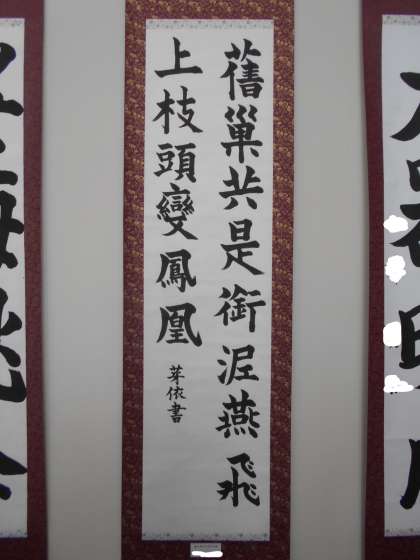 舊巢共是銜泥燕飛
上枝頭變鳳凰
芽依書